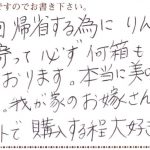 ですのでお書き下さい。
回帰省する為に りん
寄って必ず何箱も
おります。本当に美の
。我が家のお嫁さん
トで購入する程大好き